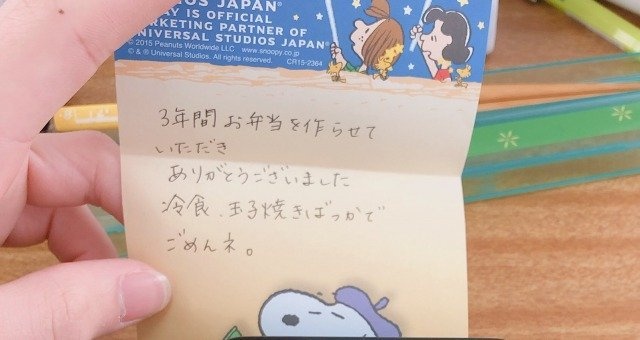 OS JAPAN®
AY IS OFFICIAL
RKETING PARTNER OF
UNIVERSAL STUDIOS JAPAN®
© 2015 Peanuts Worldwide LLC www.snoopy.co.jp
© & ® Universal Studios. All rights reserved. CR15-2364
3年間お弁当を作らせて
いただき
ありがとうございました
冷食、玉子焼きばっかで
ごめんネ。